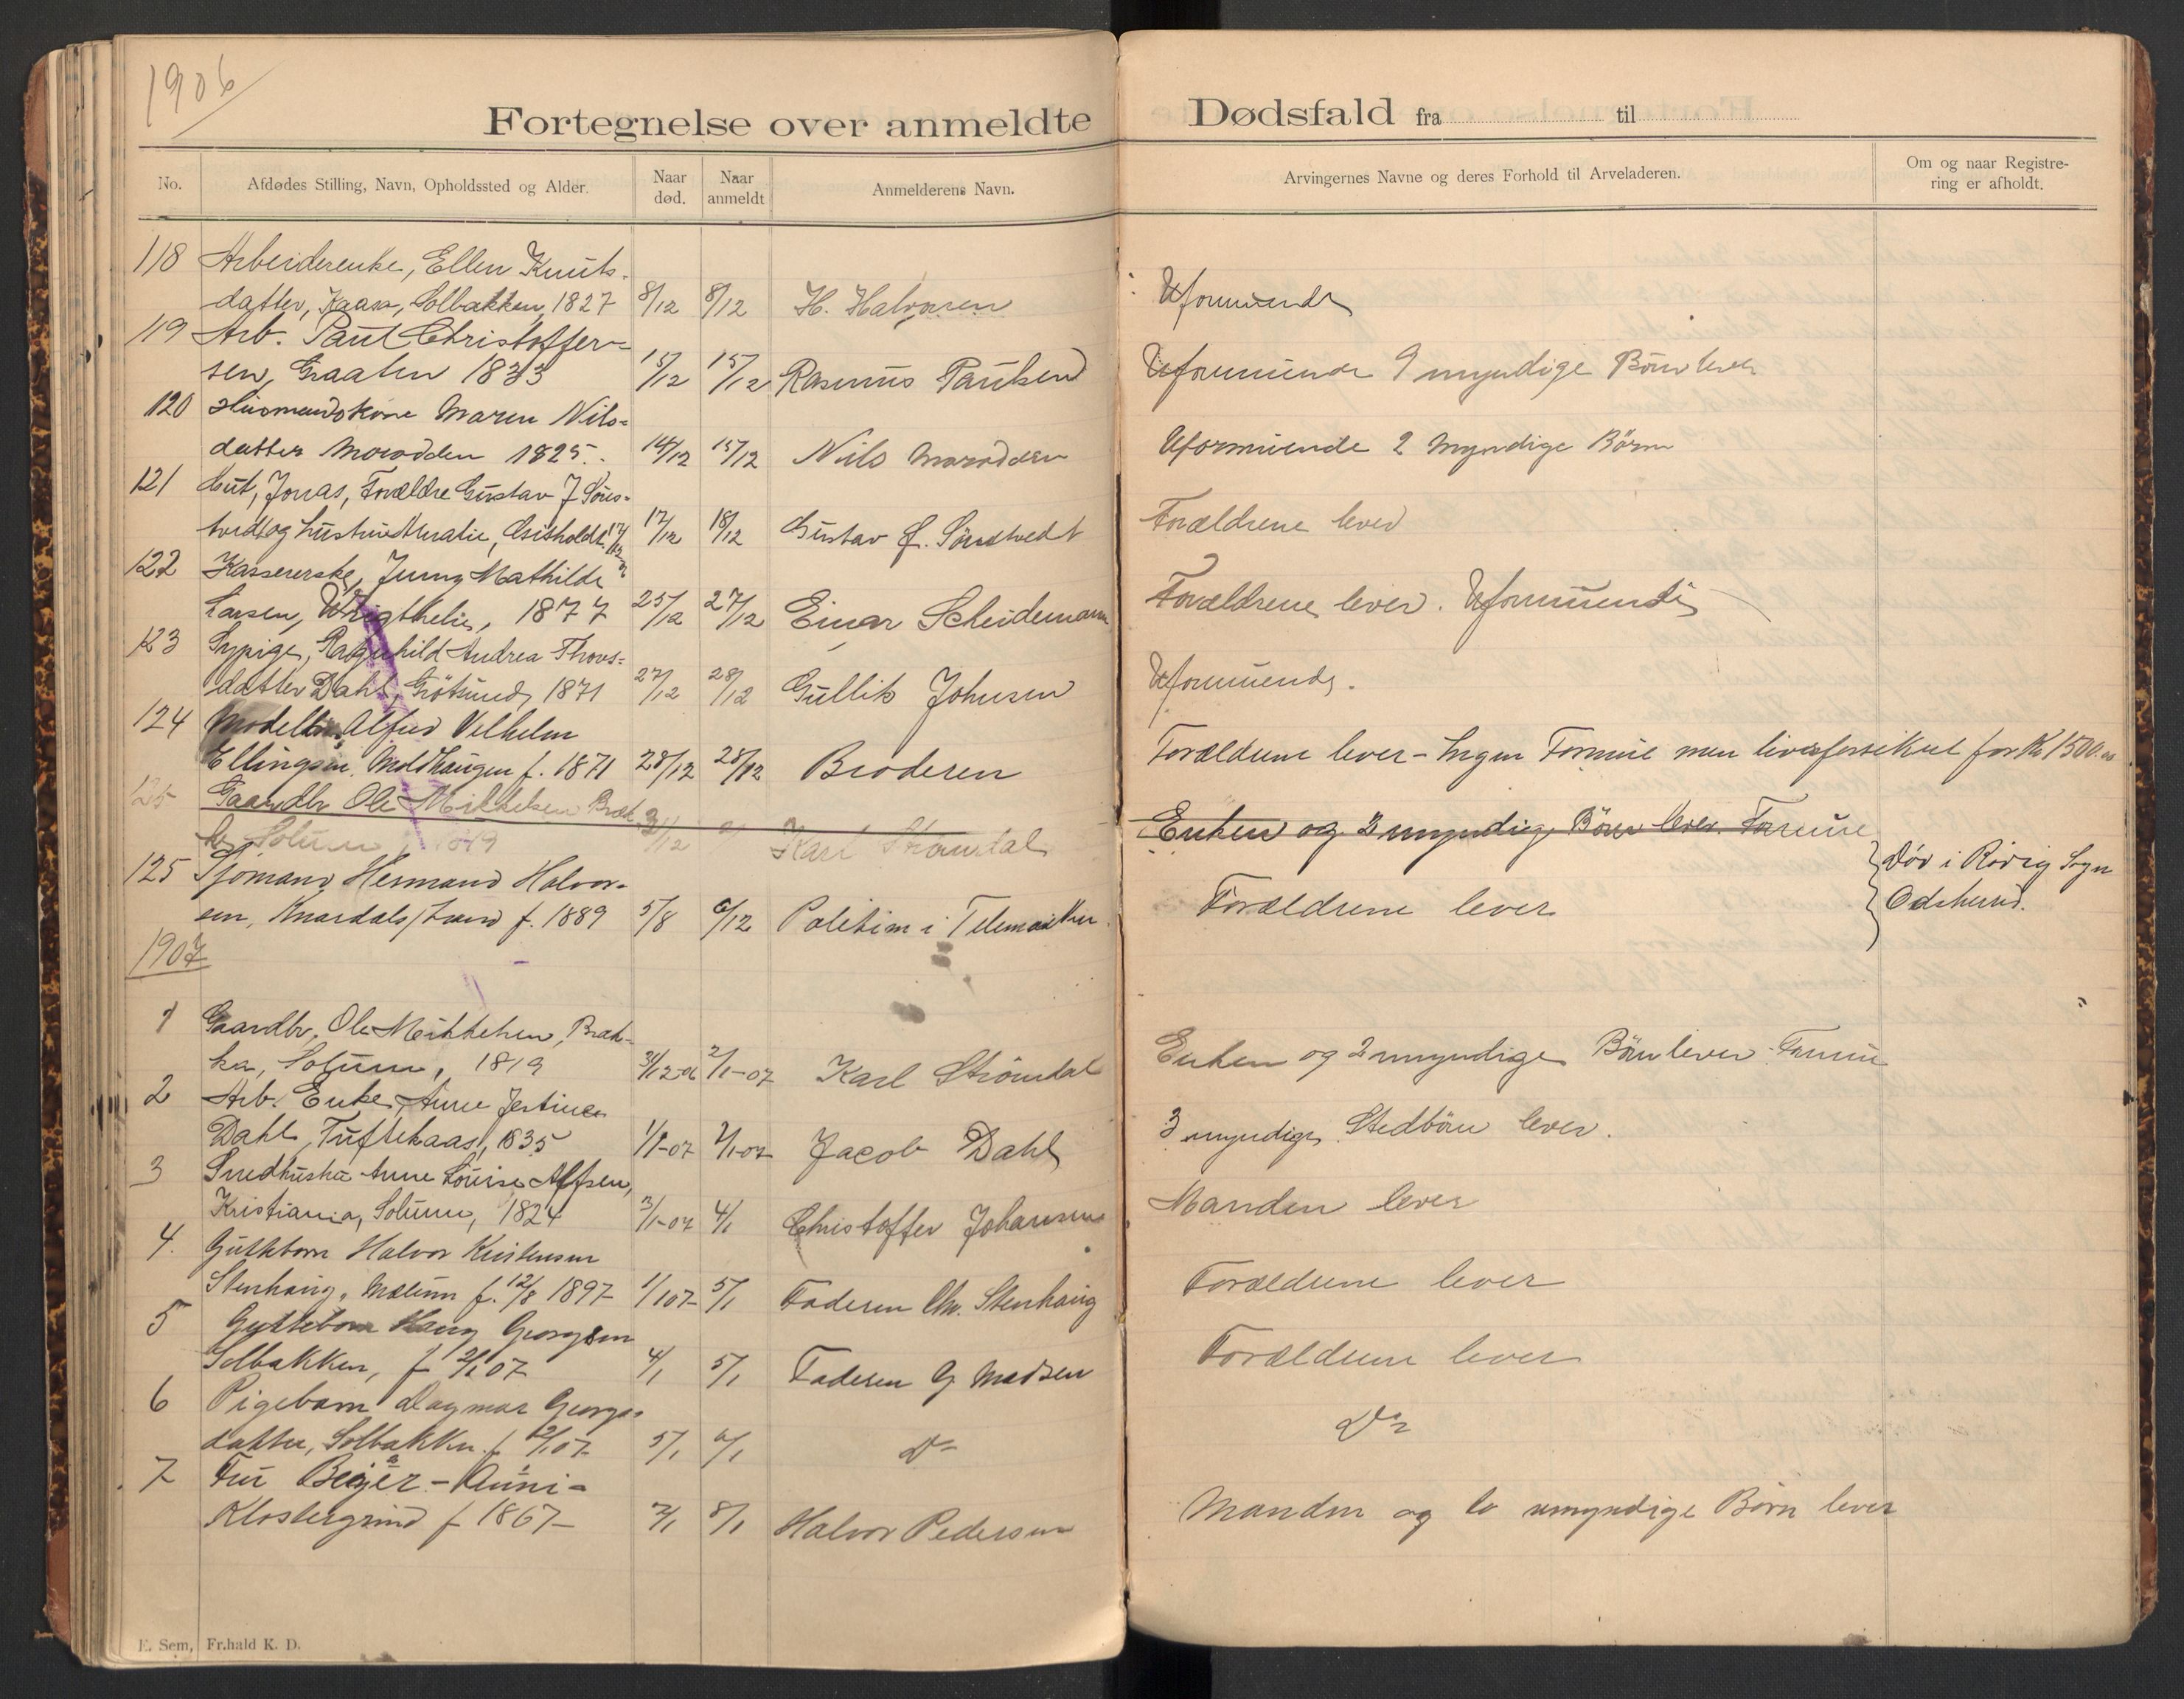 1906
Fortegnelse over anmeldte Dødsfald fra til
No. Afdødes Stilling, Navn, Opholdssted og Alder. Naar død. Naar anmeldt Anmelderens Navn. Arvingernes Navne og deres Forhold til Arveladeren. Om og naar Registrering er afholdt.
118 Arbeiderenke, Ellen Knuts-
datter, Kaasa, Solbakken, 1827 8/12 8/12 H. Halvorsen Uformuende
119 Arb. Paul Christoffer=
sen, Graaten 1833 15/12 15/12 Rasmus Paulsen Uformuende 9 myndige Børn lever
120 Husmandskone Maren Nils=
datter Moradden 1825. 14/12 15/12 Nils Moradden Uformuende 2 Myndige Börn
121 Gut, Jonas, Forældre Gustav J Söns-
tvedt og hustru Amalie, 17/12 17/12 18/12 Gustav J. Sönstvedt Forældrene lever
122 Kassererske, Jenny Mathilde
Larsen, 1877 25/12 27/12 Einar Scheidemann Forældrene lever. Uformuende
123 Sypige, Ragnhild Andrea Thovs=
datter Dahl, Grötsund, 1871 27/12 28/12 Gullik Johnsen Uformuende.
124 Modellør Alfred Vilhelm
Ellingsen. Moldhaugen f. 1871 28/12 28/12 Broderen Forældrene lever - Ingen Formue men livsforsikret for Kr 1500.00
125 Gaardbr. Ole Mikkelsen Brak-
ka Solum, 1819 31/12 Karl Strömdal Enken og 2 myndige Börn lever. Formue
125 Sjömand Hermand Halvor-
sen, Knardalsstrand f. 1889 5/8 6/12 Politim i Telemarken. Forældrene lever Död i Rörvig Sogn
Odsherred.
1907
1 Gaardbr, Ole Mikkelsen, Brak-
ka, Solum, 1819 31/12-06 2/1-07 Karl Strömdal Enken og 2 myndige Börn lever. Formue
2 Arb. Enke, Anne Jestine
Dahl, Tuftekaas, 1835 1/1-07 2/1-07 Jacob Dahl 3 myndige Stedbörn lever.
3 Smedhustru Anne Louise Alfsen,
Kristiania, Solum, 1824 3/1-07 4/1 Christoffer Johansen Manden lever
4. Guttebarn Halvor Kristensen
Stenhaug, Mælum f. 12/8 1897 1/1 07 5/1 Faderen Chr. Stenhaug Forældrene lever
5 Guttebarn Haug Georgsen
Solbakken, f 2/1 07 4/1 5/1 Faderen G Madsen Forældrene lever
6 Pigebarn Dagmar Georgs=
datter, Solbakken f. 2/1 07 5/1 6/1 Do Do
7 Fru Beijer - Anni-
Klostergrund f 1867 7/1 8/1 Halvor Pedersen Manden og to umyndige Börn lever
E. Sem, Fr.hald K. D.